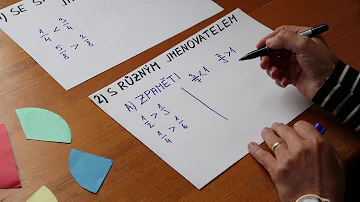 1) SE S
1/4 < 3/4
5/8 > 2/8
2) S RŮZNÝM JMENOVATELEM
A) ZPAMĚTI
1/2 > 1/3
1/4 > 1/6